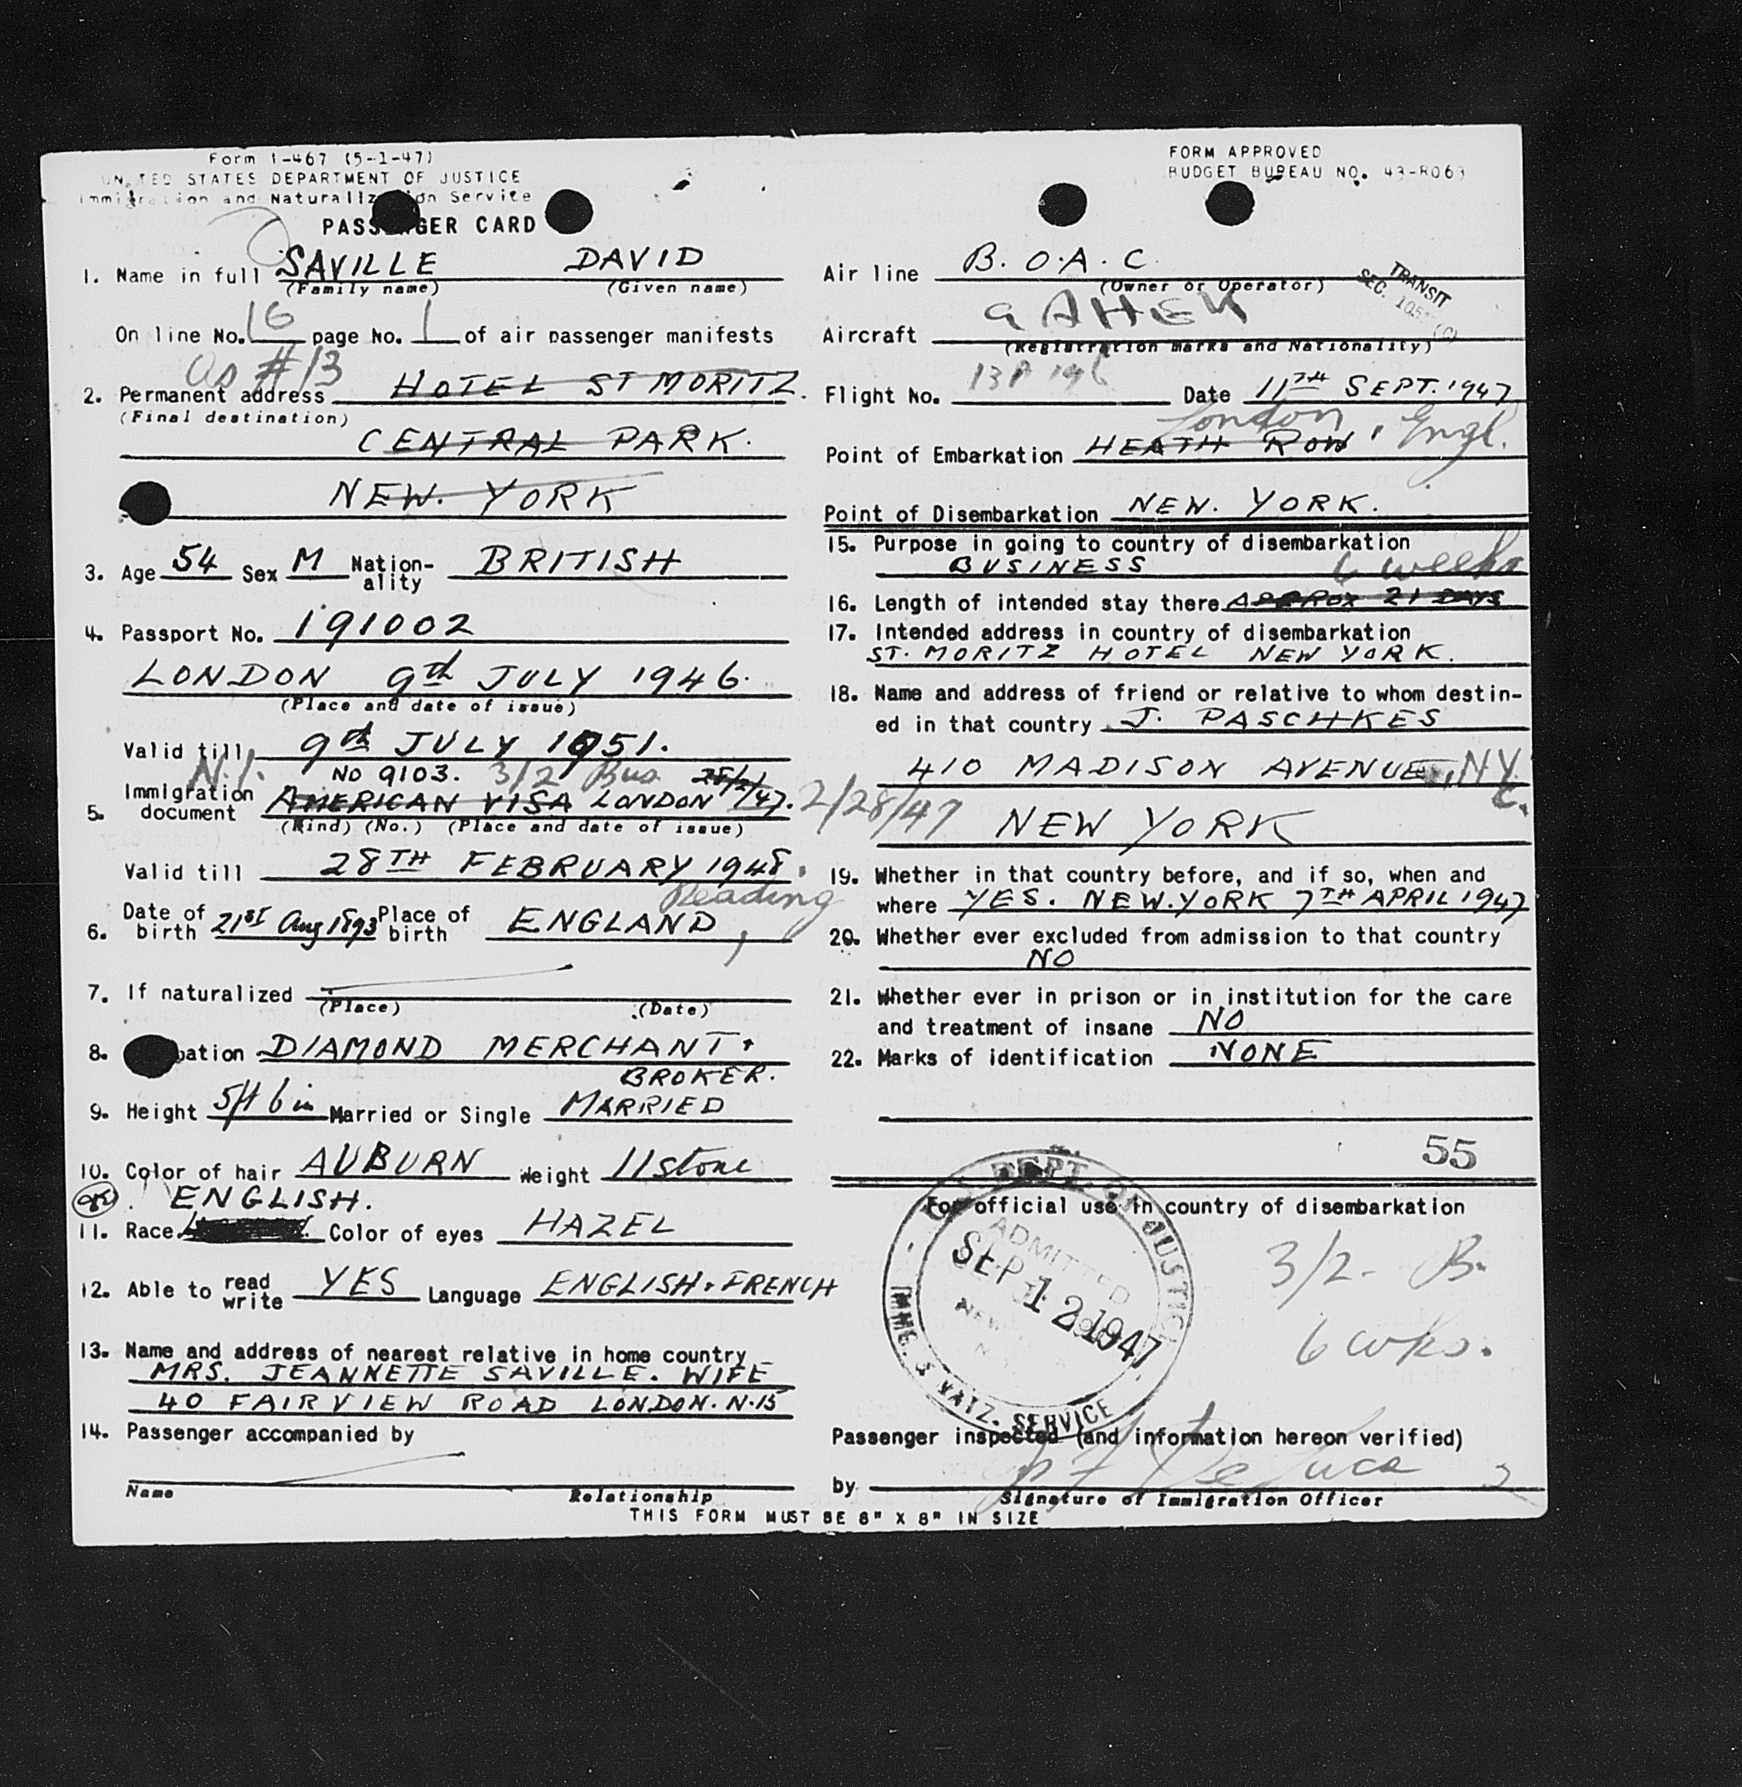 Form I-467 (5-1-47)
UNITED STATES DEPARTMENT OF JUSTICE
Immigration and Naturalization Service
PASSENGER CARD
FORM APPROVED
BUDGET BUREAU NO. 43-R063
1. Name in full SAVILLE DAVID
(Family name) (Given name)
On line No. 16 page No. 1 of air passenger manifests
as #13
2. Permanent address HOTEL ST MORITZ.
(Final destination)
CENTRAL PARK.
NEW. YORK
3. Age 54 Sex M Nation-ality BRITISH
4. Passport No. 191002
LONDON 9th JULY 1946.
(Place and date of issue)
Valid till 9th JULY 1951.
N.I. No 9103. 3/2 Bus
5. Immigration document AMERICAN VISA LONDON 28/2/47. 2/28/47
(Kind) (No.) (Place and date of issue)
Valid till 28TH FEBRUARY 1948.
Reading
6. Date of birth 21st Aug 1893 Place of birth ENGLAND,
7. If naturalized
(Place) (Date)
8. pation DIAMOND MERCHANT.
BROKER.
9. Height 5ft 6in Married or Single MARRIED
10. Color of hair AUBURN Weight 11 stone
ENGLISH.
11. Race Color of eyes HAZEL
12. Able to read write YES Language ENGLISH. FRENCH
13. Name and address of nearest relative in home country
MRS. JEANNETTE SAVILLE. WIFE
40 FAIRVIEW ROAD LONDON. N.15
14. Passenger accompanied by
Name Relationship
Air line B.O.A.C.
(Owner or Operator)
TRANSIT
SEC.
Aircraft G AHEK
(Registration marks and Nationality)
Flight No. Date 11TH SEPT. 1947
London
Point of Embarkation HEATH ROW, Engl.
Point of Disembarkation NEW. YORK.
15. Purpose in going to country of disembarkation
BUSINESS 6 weeks
16. Length of intended stay there APPROX 21 DAYS
17. Intended address in country of disembarkation
ST. MORITZ HOTEL NEW YORK.
18. Name and address of friend or relative to whom destin-
ed in that country J. PASCHKES
410 MADISON AVENUE, N.Y.C.
NEW YORK
19. Whether in that country before, and if so, when and
where YES. NEW. YORK 7TH APRIL 1947
20. Whether ever excluded from admission to that country
NO
21. Whether ever in prison or in institution for the care
and treatment of insane NO
22. Marks of identification NONE
55
For official use in country of disembarkation
DEPT. OF JUSTICE
ADMITTED
SEP 12 1947
NEW
IMMG. & NATZ. SERVICE
3/2- B.
6 wks.
Passenger inspected (and information hereon verified)
by De Luca
Signature of Immigration Officer
THIS FORM MUST BE 8" X 8" IN SIZE